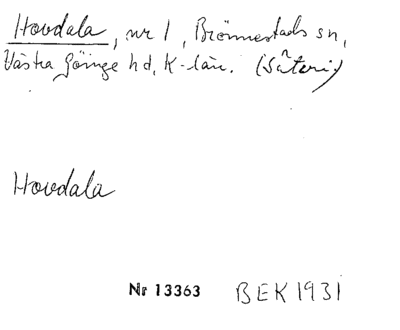 Hovdala, nr 1, Brönnestads sn,
Västra Göinge hd, K-län. (Säteri)
Hovdala
Nr 13363 BEK 1931